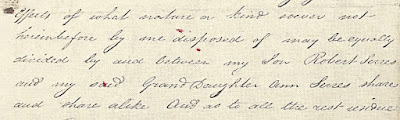 effects of what nature or kind soever not
hereinbefore by me disposed of may be equally
divided by and between my Son Robert Serres
and my said Grand Daughter Ann Serres share
and share alike And as to all the rest residue